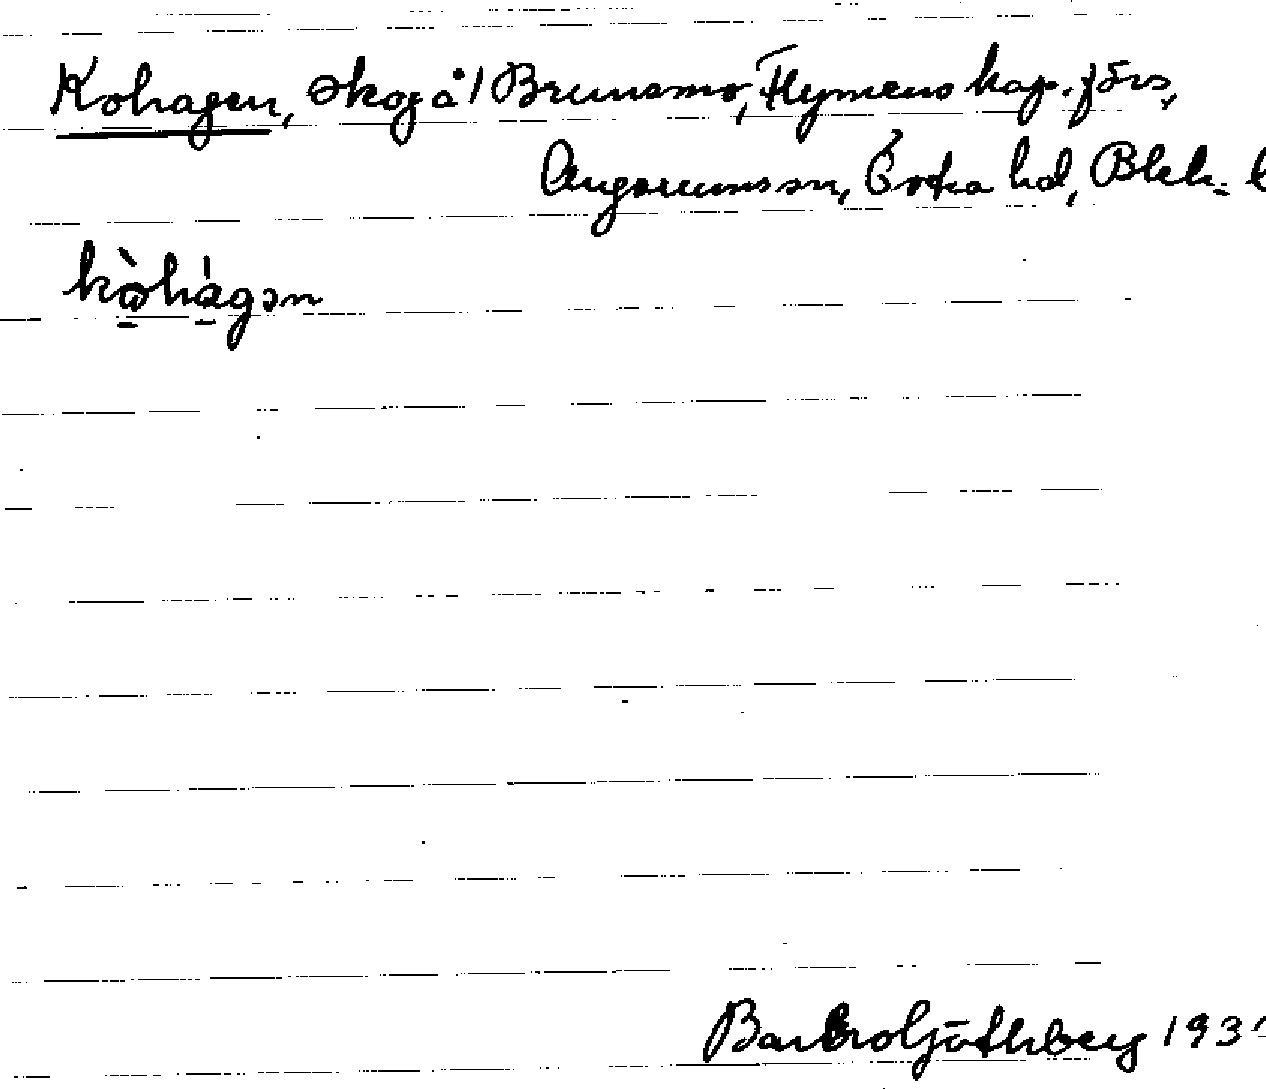 Kohagen, skog å 1 Brunsmo, Flymens kap. förs,
Augerums sn, Östra hd, Blek.
kòhágən
Barbro Götheberg 193